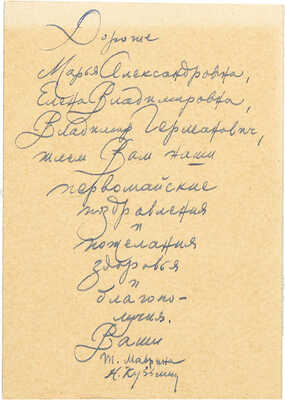 Дорогие
Марья Александровна,
Елена Владимировна,
Владимир Германович,
шлем Вам наши
первомайские
поздравления
и
пожелания
здоровья
и
благопо-
лучия.
Ваши
Т. Маврина
Н. Кузьмин